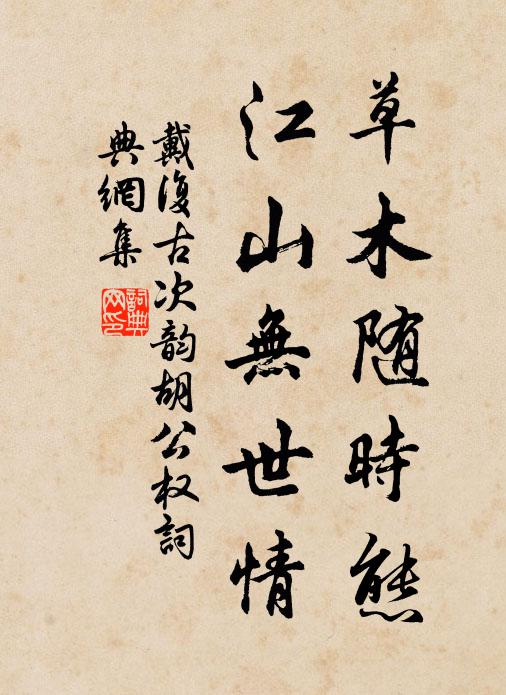 草木随時態
江山無世情
戴復古次韵胡公权詞
典網集
詞典
网印